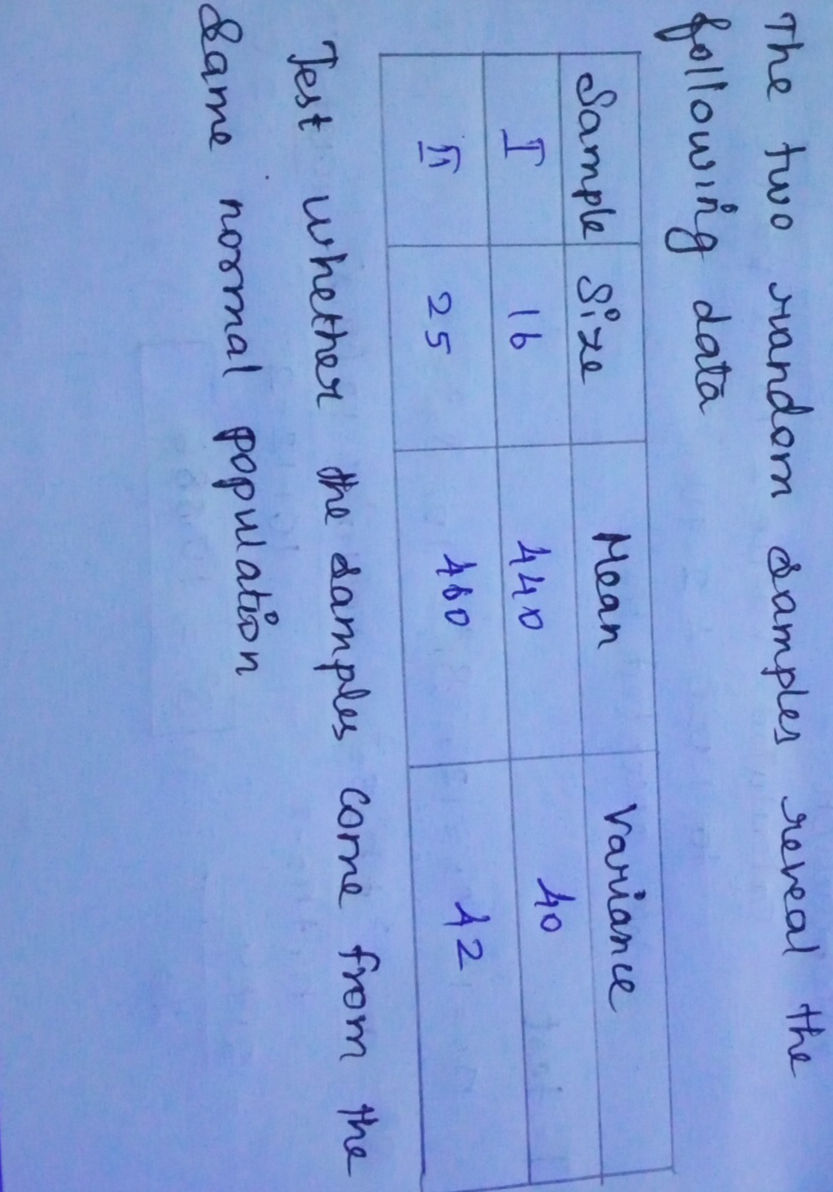 The two random samples reveal the
following data
Sample Size Mean Variance
I 16 440 40
II 25 460 42
Test whether the samples come from the
same normal population